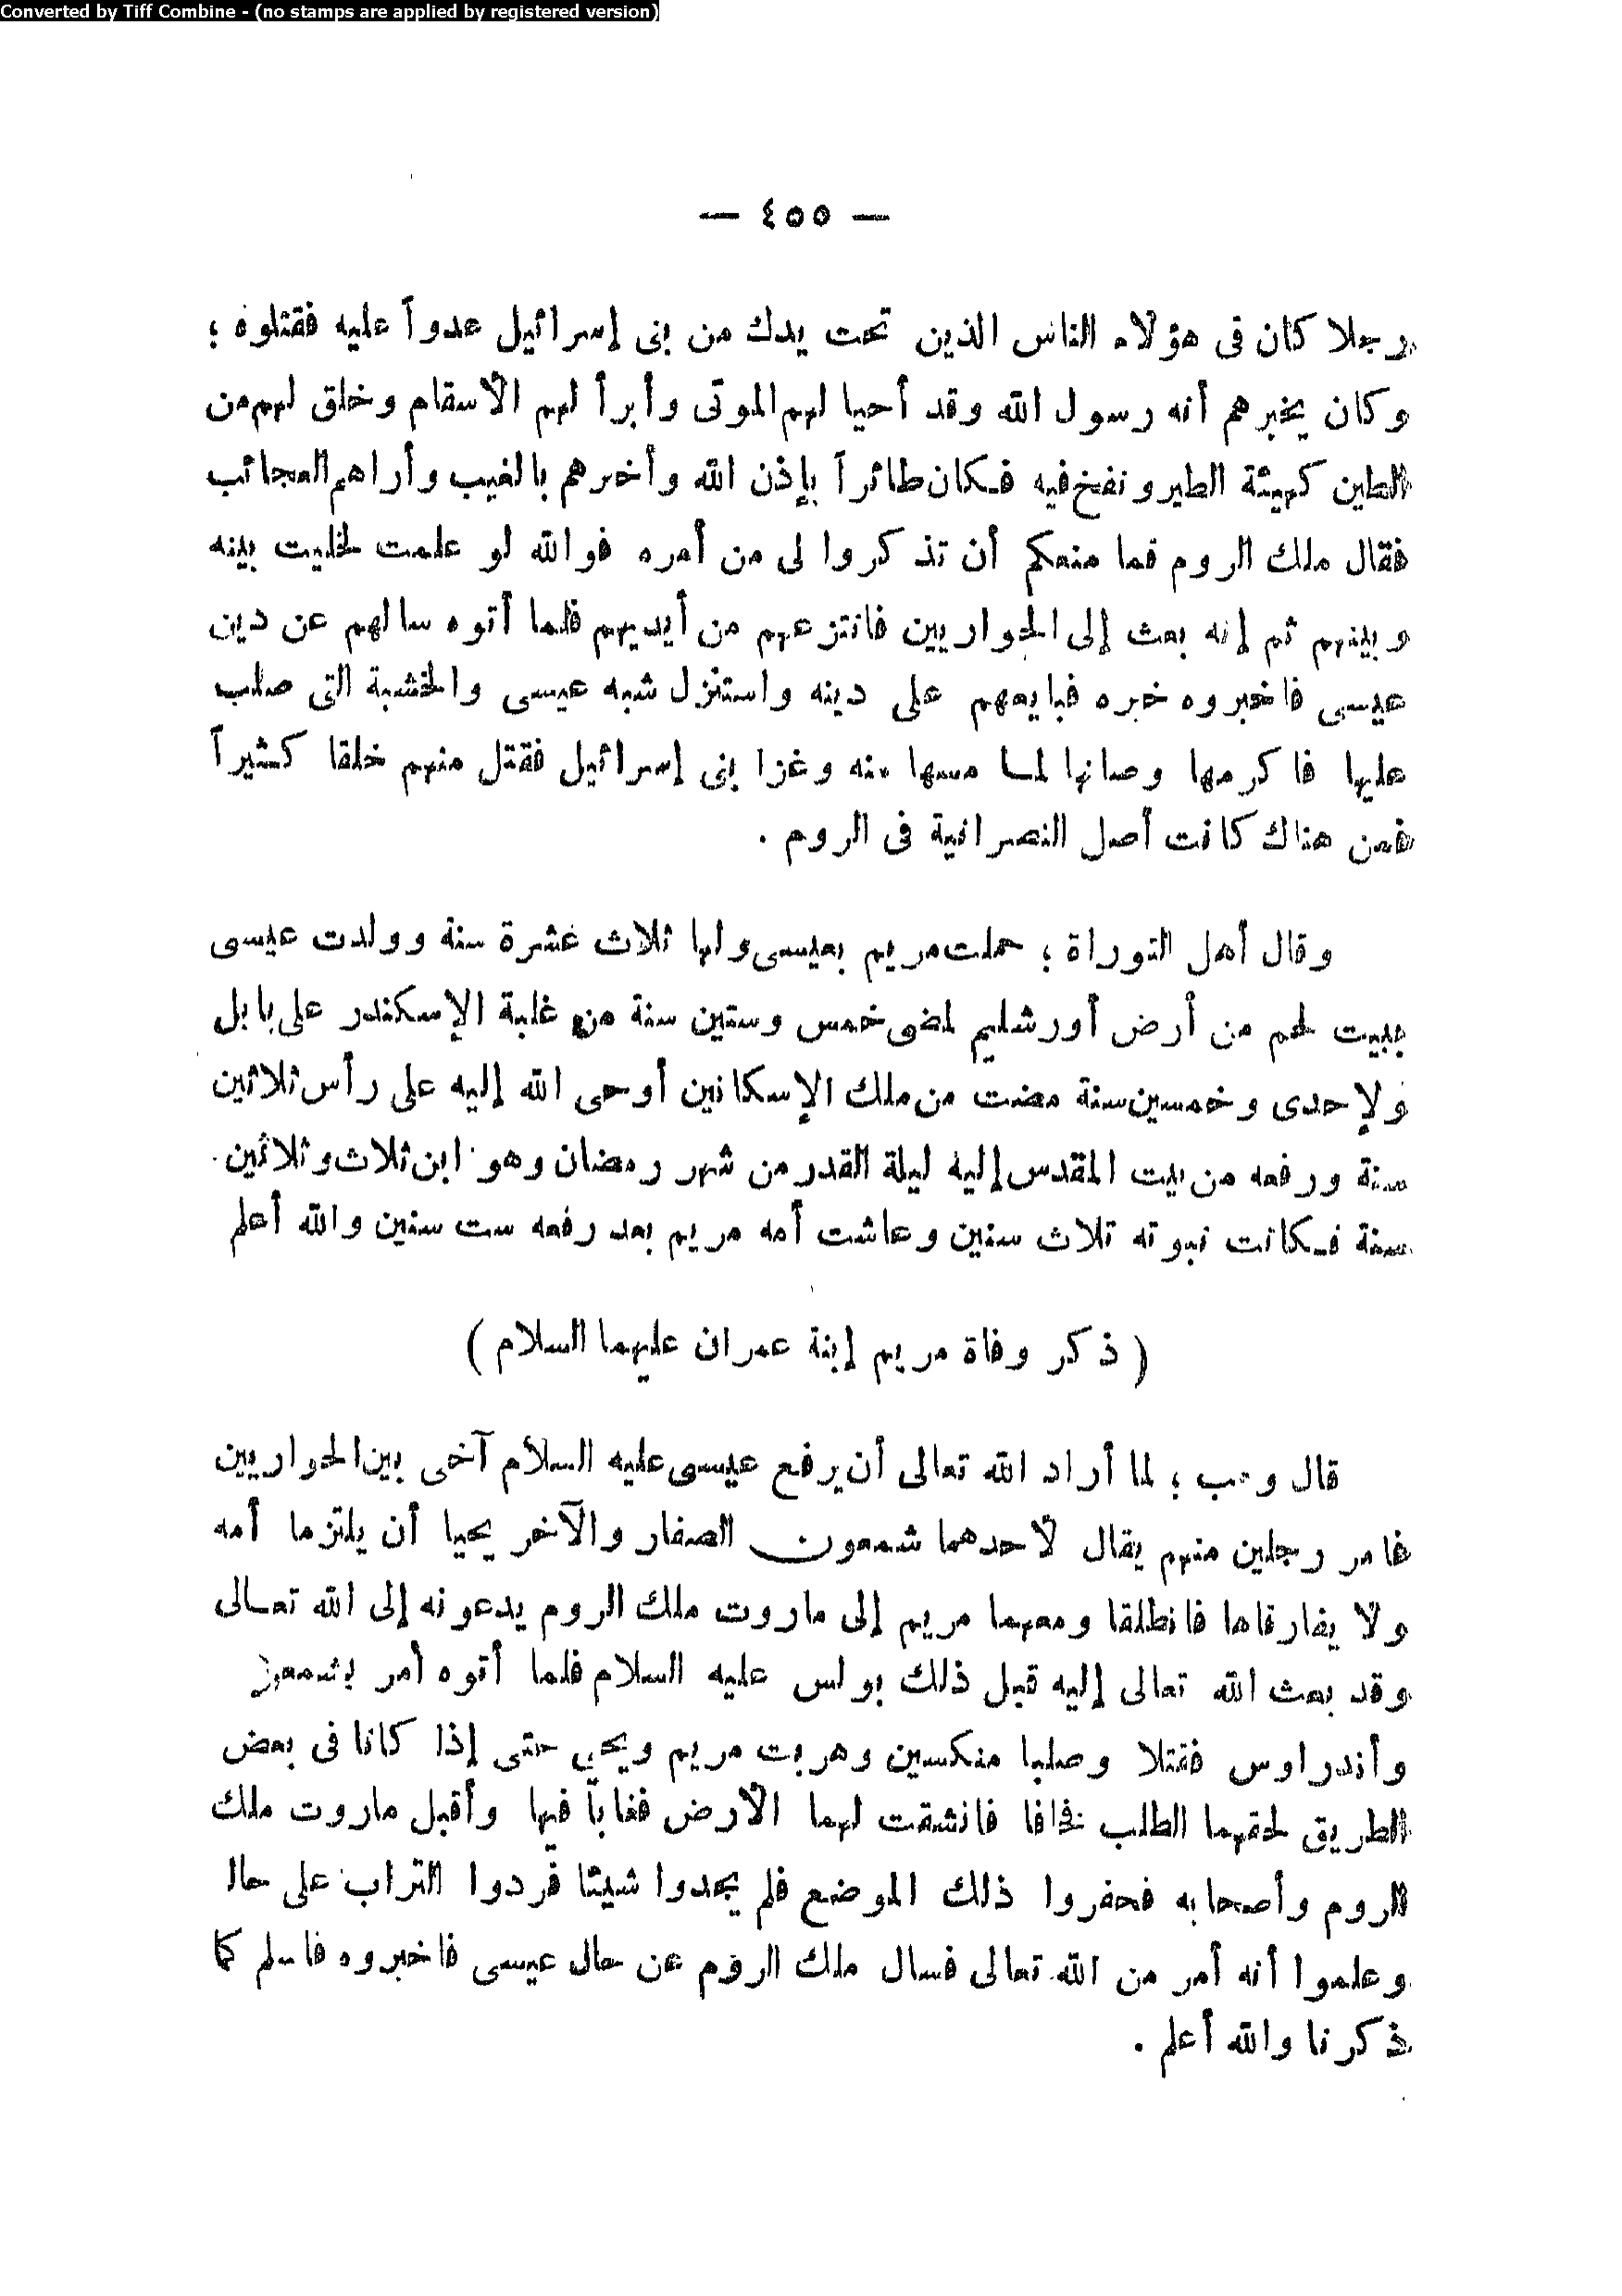 Converted by Tiff Combine - (no stamps are applied by registered version)
— ٤٥٥ —
رجلا كان فى هؤلاء الناس الذين تحت يدك من بنى إسرائيل عدوآ عليه فقتلوه ؛
وكان يخبرهم أنه رسول الله وقد أحيا لهم الموتى وأبرأ لهم الأسقام وخلق لهم من
الطين كهيئة الطير ونفخ فيه فكان طائرآ بإذن الله وأخبرهم بالغيب وأراهم العجائب
فقال ملك الروم فما منعكم أن تذكروا لى من أمره فوالله لو علمت لخليت بينه
وبينهم ثم إنه بعث إلى الحواريين فانتزعهم من أيديهم فلما أتوه سالهم عن دين
عيسى فاخبروه خبره فبايعهم على دينه واستنزل شبه عيسى والخشبة التى صلب
عليها فاكرمها وصانها لما مسها منه وغزا بنى إسرائيل فقتل منهم خلقا كثيرآ
فمن هناك كانت أصل النصرانية فى الروم .
وقال أهل التوراة ؛ حملت مريم بعيسى ولها ثلاث عشرة سنة وولدت عيسى
ببيت لحم من أرض أورشليم لمضى خمس وستين سنة من غلبة الإسكندر على بابل
ولإحدى وخمسين سنة مضت من ملك الإسكانين أوحى الله إليه على رأس ثلاثين
سنة ورفعه من بيت المقدس إليه ليلة القدر من شهر رمضان وهو ابن ثلاث وثلاثين
سنة فكانت نبوته ثلاث سنين وعاشت أمه مريم بعد رفعه ست سنين والله أعلم
( ذكر وفاة مريم إبنة عمران عليهما السلام )
قال وهب ؛ لما أراد الله تعالى أن يرفع عيسى عليه السلام آخى بين الحواريين
فامر رجلين منهم يقال لأحدهما شمعون الصفار والآخر يحيا أن يلتزما أمه
ولا يفارقاها فانطلقا ومعهما مريم إلى ماروت ملك الروم يدعونه إلى الله تعالى
وقد بعث الله تعالى إليه قبل ذلك بولس عليه السلام فلما أتوه أمر بشمعون
وأندراوس فقتلا وصلبا منكسين وهربت مريم ويحي حتى إذا كانا فى بعض
الطريق لحقهما الطلب فخافا فانشقت لهما الأرض فغابا فيها وأقبل ماروت ملك
الروم وأصحابه فحفروا ذلك الموضع فلم يجدوا شيئا فردوا التراب على حاله
وعلموا أنه أمر من الله تعالى فسال ملك الروم عن حال عيسى فاخبروه فاسلم كما
ذكرنا والله أعلم .